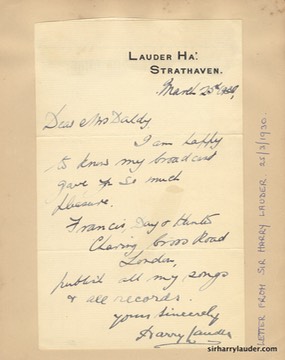 LAUDER HA:
STRATHAVEN.
March 25th
Dear Mrs Daldy.
I am happy
to know my broadcast
gave you so much
pleasure.
Francis, Day & Hunter
Charing Cross Road
London,
publish all my songs
& all records.
yours Sincerely
Harry Lauder
LETTER FROM SIR HARRY LAUDER. 25/3/1930.
sirharrylauder.com